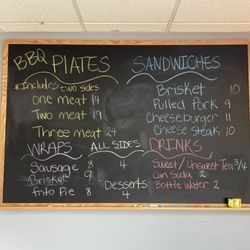 BBQ PLATES
*Includes two sides
One meat 14
Two meat 19
Three meat 24
SANDWICHES
Brisket 10
Pulled Pork 9
Cheeseburger 11
Cheese Steak 10
WRAPS
Sausage 8
Brisket 9
Frito Pie 8
ALL SIDES
4
Desserts
4
DRINKS
Sweet/Unsweet Tea 3/4
Can Soda 2
Bottle Water 2